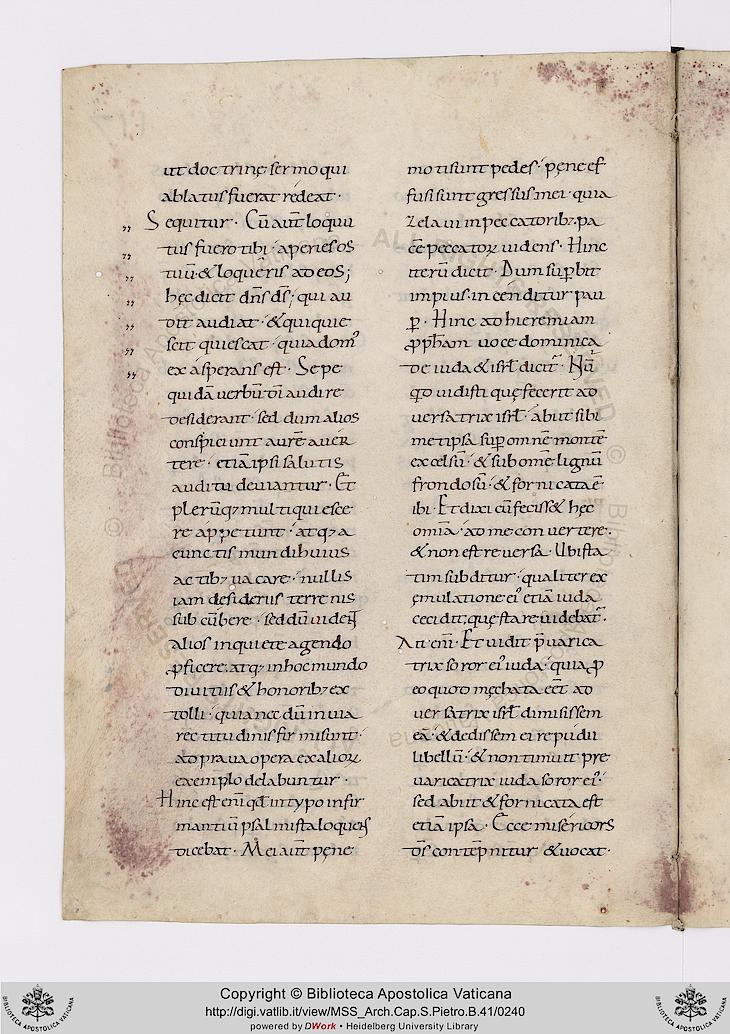 ut doctrinę sermo qui
ablatus fuerat redeat ·
Sequitur · Cū aūt locu
tus fuero tibi · aperies os
tuū · & loqueris ad eos;
hęc dicit dn̄s ds̄; qui au
dit audiat · & qui quie
scit quiescat · quia dom'
exasperans est · Sepe
quidā verbū dī audire
desiderant · sed dum alios
conspiciunt aurē aver
tere · etiā ipsi salutis
auditu deviantur · Et
plerūq; multi quiesce
re appetunt · atq; a
cunctis mundi huius
actib; vacare · nullis
iam desideriis terrenis
subcūbere · sed dū vident
alios inquiete agendo
ꝓficere · atq; in hoc mundo
divitiis & honorib; ex
tolli · quia nec dū in via
rectitudinis firmi sunt ·
ad prava opera ex alioꝝ
exemplo delabuntur ·
Hinc est enī qđ in typo infir
mantiū psalmista loquens
dicebat · Mei aūt pęne
moti sunt pedes · pęne ef
fusi sunt gressus mei · quia
zelavi in peccatorib; pa
cē peccatoꝝ videns · Hinc
iterū dicit · Dum suꝑbit
impius · incenditur pau
ꝑ · Hinc ad hieremiam
ꝓph̄am voce dominica
de iuda & isrl̄ dicit̄ · Nū
qđ vidisti quę fecerit ad
versatrix isrl̄ · abiit sibi
metipsa suꝑ omnē montē
excelsū · & sub omne lignū
frondosū · & fornicata ē
ibi · Et dixi cū feciss& hęc
omīa · ad me convertere ·
& non est reversa · Ubi sta
tim subditur · qualiter ex
ęmulatione ei' etiā iuda
cecidit; quę stare videbat̄ ·
Ait enī · Et vidit p̄varica
trix soror ei' iuda · quia ꝓ
eo quod męchata eēt ad
versatrix isrl̄ dimisissem
eā · & dedissem ei repudii
libellū · & non timuit pre
varicatrix iuda soror ei' ·
sed abiit & fornicata est
etiā ipsa · Ecce misericors
ds̄ contēpnitur & vocat ·
Copyright © Biblioteca Apostolica Vaticana
http://digi.vatlib.it/view/MSS_Arch.Cap.S.Pietro.B.41/0240
powered by DWork • Heidelberg University Library